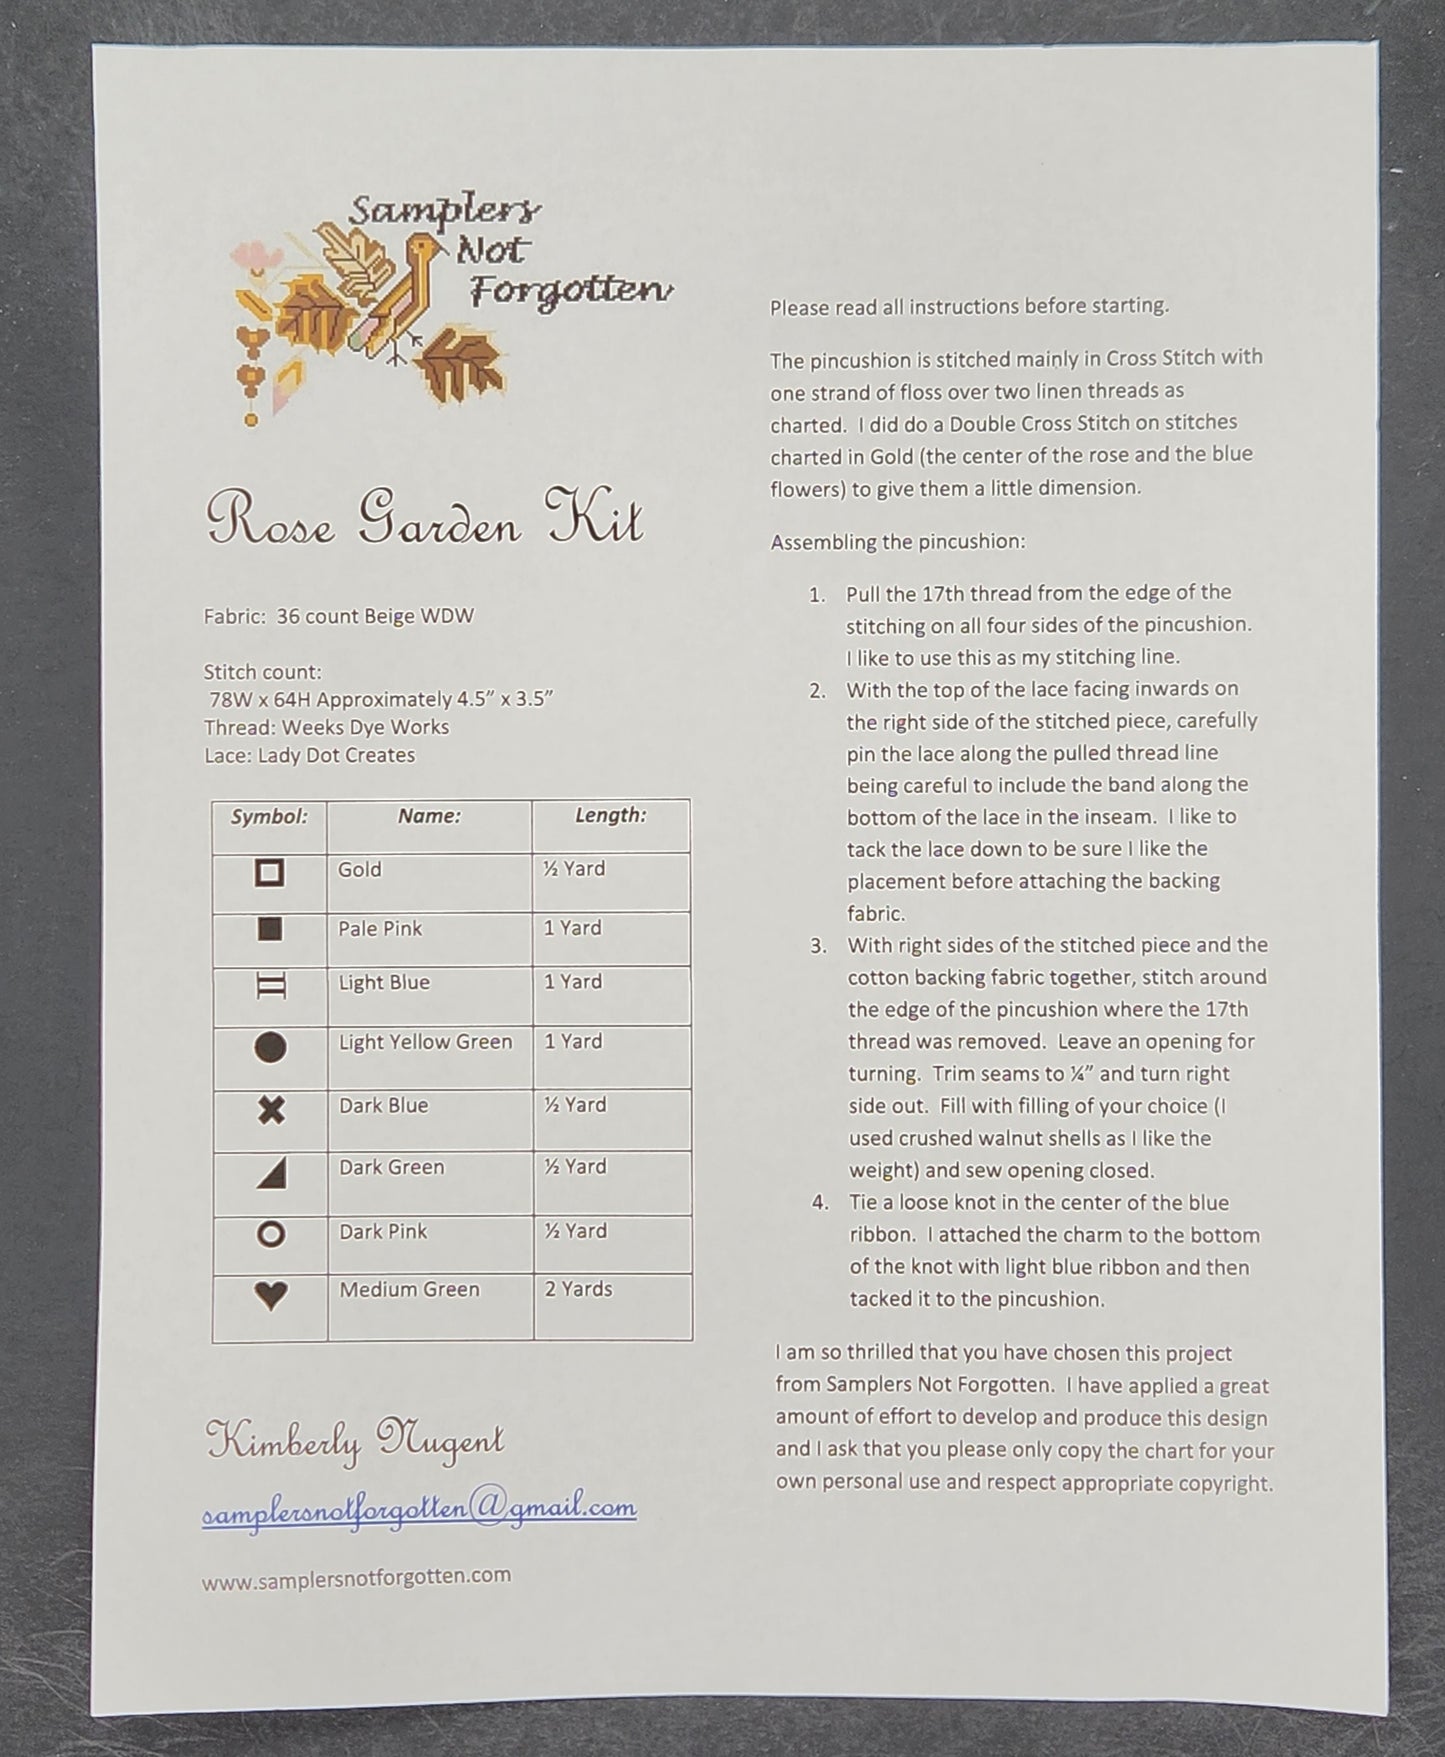 Samplers
Not
Forgotten
Rose Garden Kit
Fabric: 36 count Beige WDW
Stitch count:
78W x 64H Approximately 4.5” x 3.5”
Thread: Weeks Dye Works
Lace: Lady Dot Creates
Symbol: Name: Length:
Gold ½ Yard
Pale Pink 1 Yard
Light Blue 1 Yard
Light Yellow Green 1 Yard
Dark Blue ½ Yard
Dark Green ½ Yard
Dark Pink ½ Yard
Medium Green 2 Yards
Kimberly Nugent
samplersnotforgotten@gmail.com
www.samplersnotforgotten.com
Please read all instructions before starting.
The pincushion is stitched mainly in Cross Stitch with
one strand of floss over two linen threads as
charted. I did do a Double Cross Stitch on stitches
charted in Gold (the center of the rose and the blue
flowers) to give them a little dimension.
Assembling the pincushion:
1. Pull the 17th thread from the edge of the
stitching on all four sides of the pincushion.
I like to use this as my stitching line.
2. With the top of the lace facing inwards on
the right side of the stitched piece, carefully
pin the lace along the pulled thread line
being careful to include the band along the
bottom of the lace in the inseam. I like to
tack the lace down to be sure I like the
placement before attaching the backing
fabric.
3. With right sides of the stitched piece and the
cotton backing fabric together, stitch around
the edge of the pincushion where the 17th
thread was removed. Leave an opening for
turning. Trim seams to ¼” and turn right
side out. Fill with filling of your choice (I
used crushed walnut shells as I like the
weight) and sew opening closed.
4. Tie a loose knot in the center of the blue
ribbon. I attached the charm to the bottom
of the knot with light blue ribbon and then
tacked it to the pincushion.
I am so thrilled that you have chosen this project
from Samplers Not Forgotten. I have applied a great
amount of effort to develop and produce this design
and I ask that you please only copy the chart for your
own personal use and respect appropriate copyright.